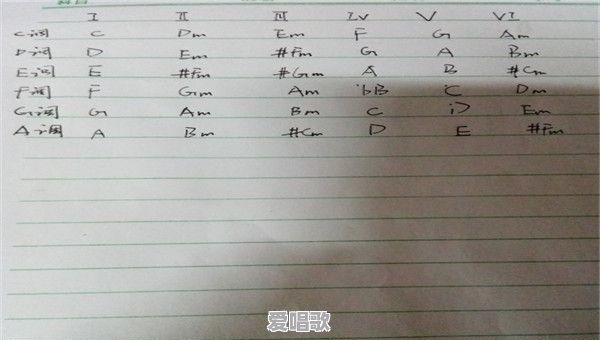 I II III IV V VI
C调 C Dm Em F G Am
D调 D Em #Fm G A Bm
E调 E #Fm #Gm A B #Cm
F调 F Gm Am bB C Dm
G调 G Am Bm C D Em
A调 A Bm #Cm D E #Fm
爱唱歌